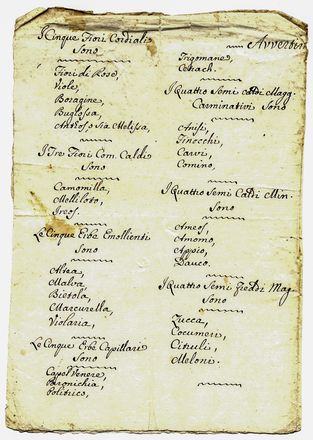 I Cinque Fiori Cordiali
Sono
Fiori di Rose,
Viole,
Boragine,
Buglossa,
Antos o sia Melissa,
I Tre Fiori Com. Caldi
Sono
Camomilla,
Melliloto,
Ireos.
Le Cinque Erbe Emollienti
Sono
Altea,
Malva,
Bietola,
Marcurella,
Violaria,
Le Cinque Erbe Capillari
Sono
Capel Venere,
Politrico,
Avverten
Trigomane,
Cetrach.
I Quattro Semi Caldi Magg.
Carminativi Sono
Anisi,
Finocchi,
Carvi,
Comino,
I Quattro Semi Caldi Min.
Sono
Ameos,
Amomo,
Appio,
Dauco.
I Quattro Semi Fredi Mag.
Sono
Zucca,
Cocumeri,
Citruli,
Meloni.